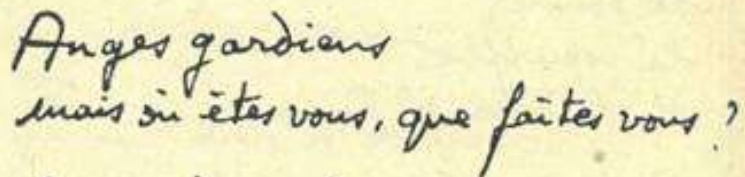 Anges gardiens
mais où êtes vous, que faites vous ?